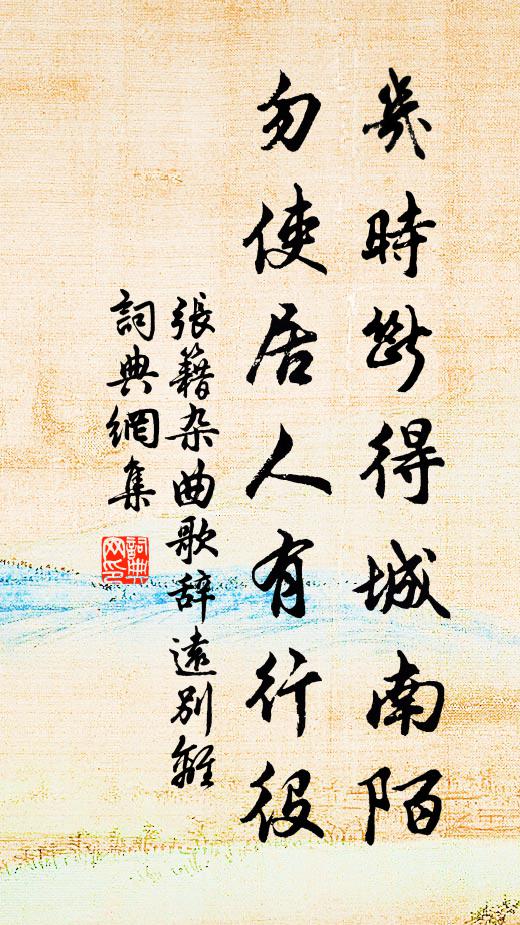 幾時斷得城南陌
勿使居人有行役
張籍杂曲歌辞遠別離
詞典網集
詞典
网印